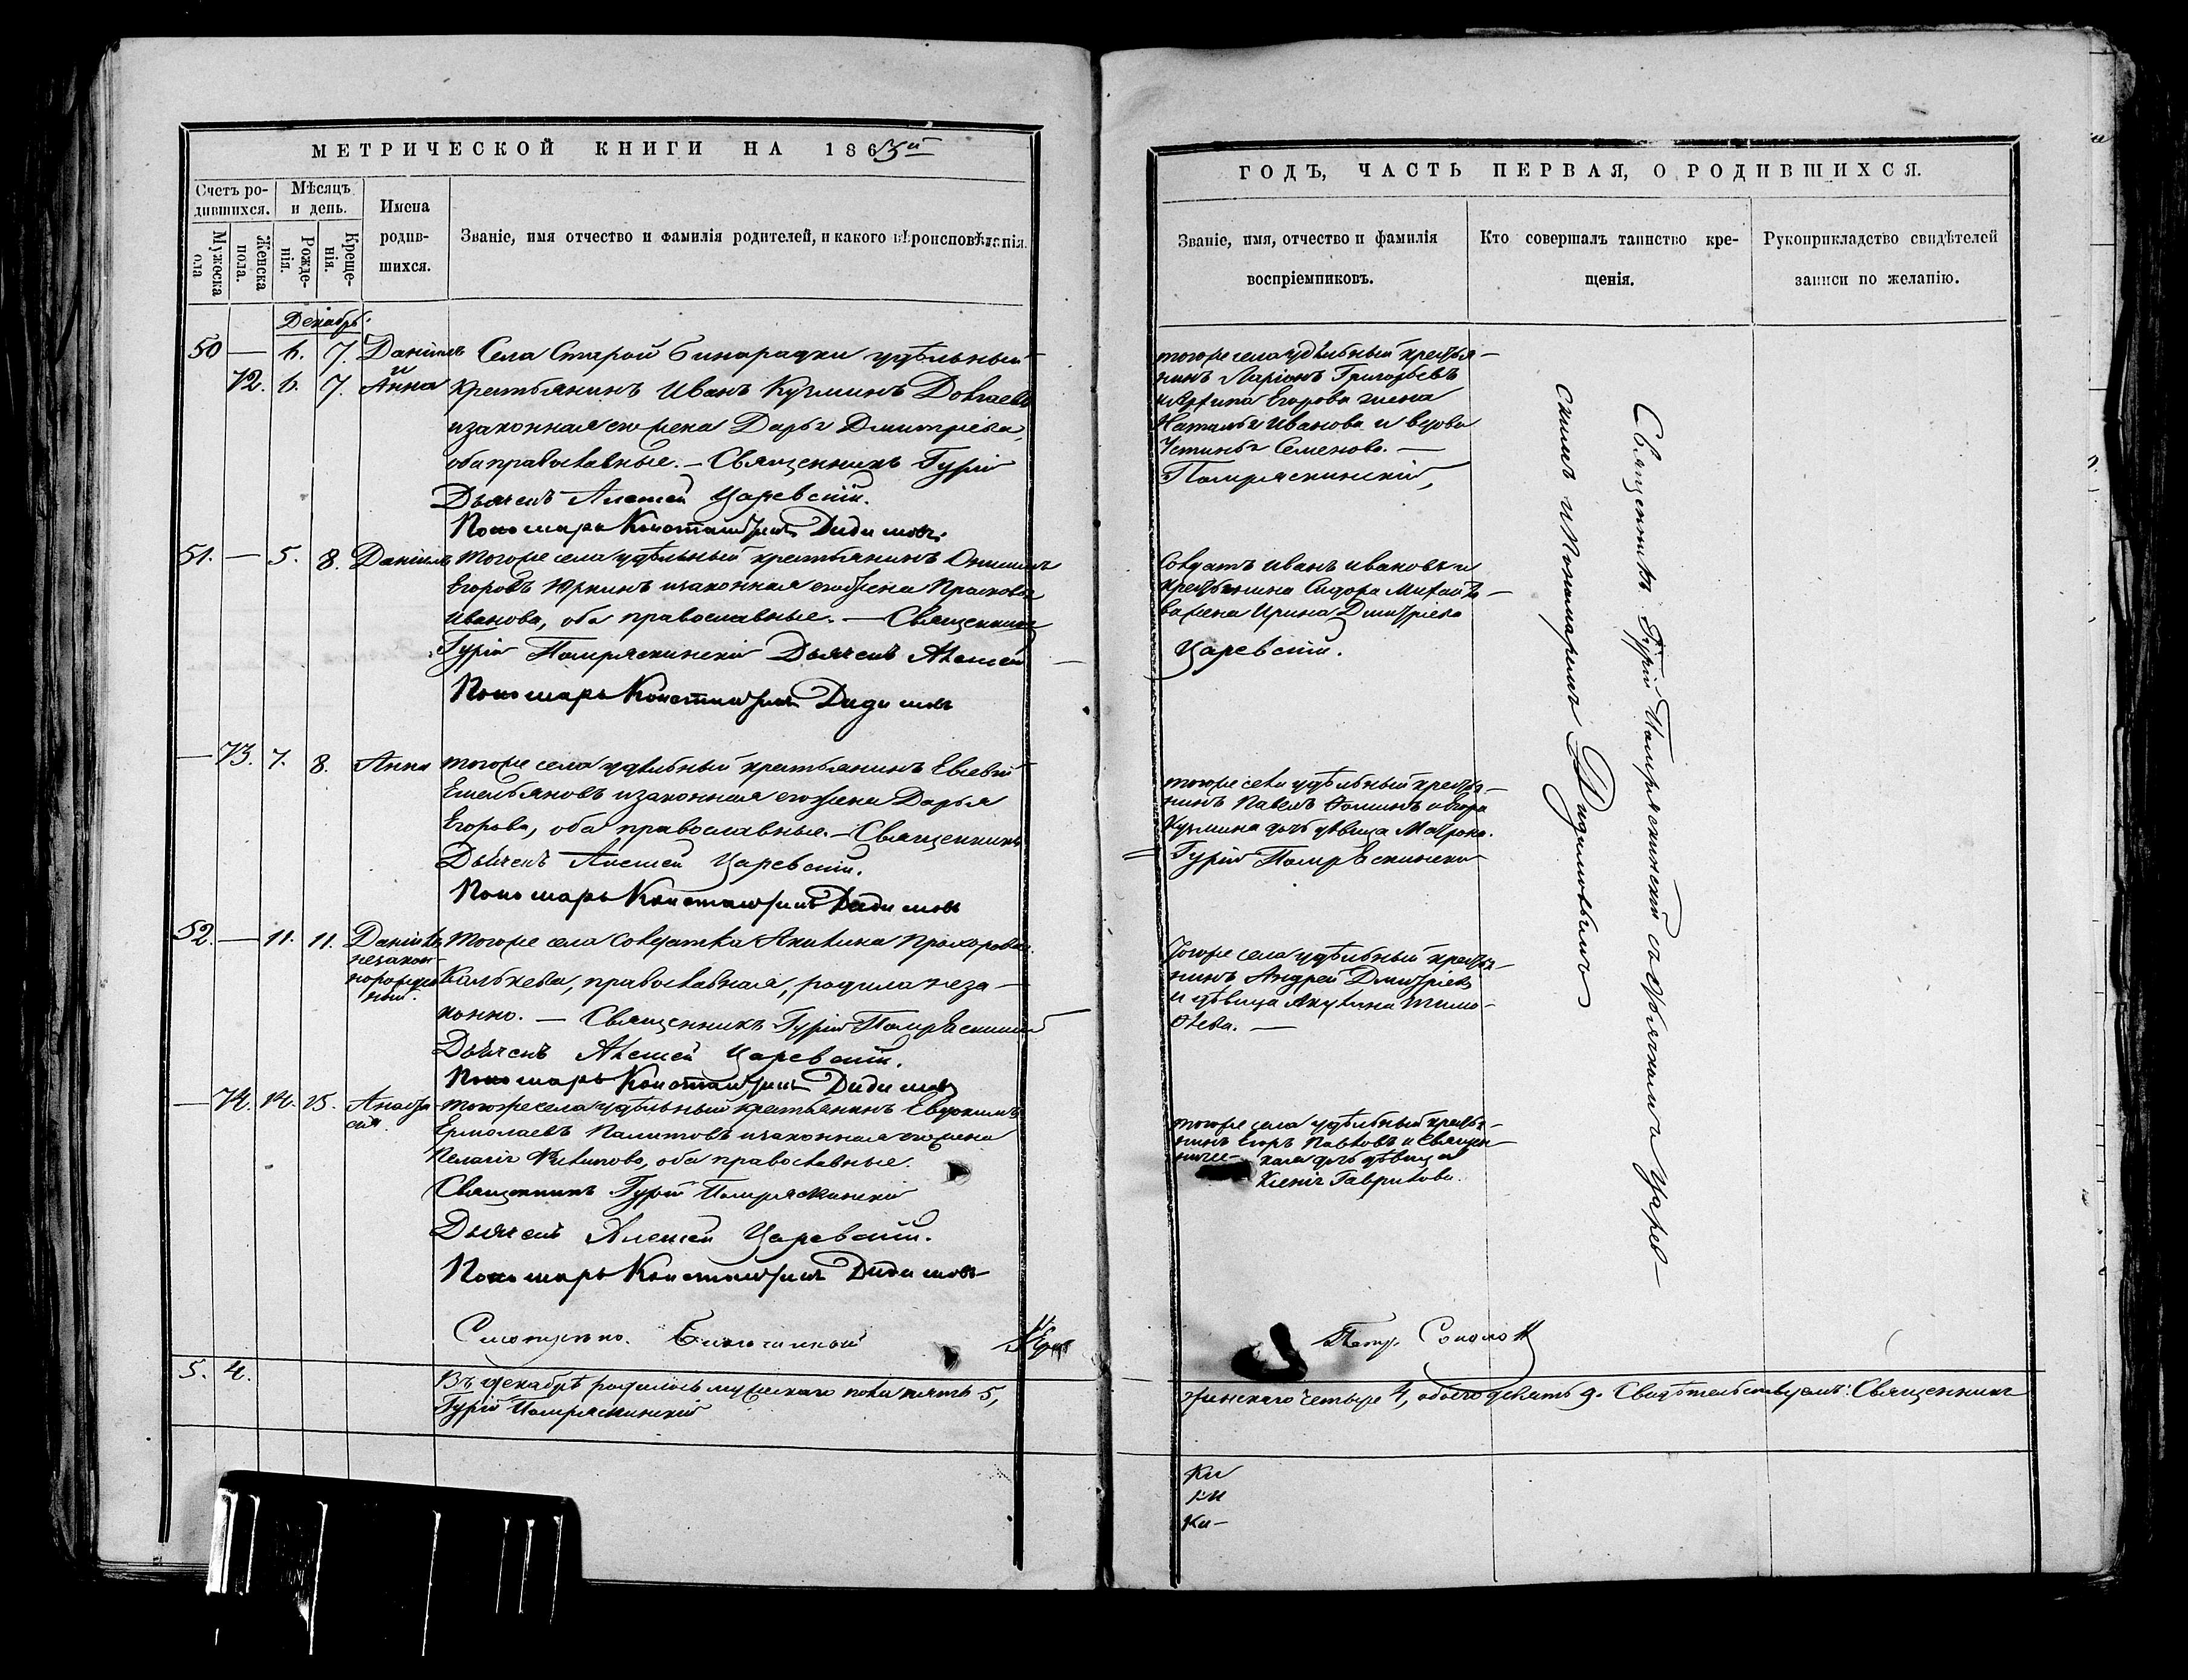 МЕТРИЧЕСКОЙ КНИГИ НА 1863й
Счетъ ро-
дившихся.
Мѣсяцъ
и день.
Имена
родив-
шихся.
Званіе, имя отчество и фамилія родителей, и какого вѣроисповѣданія.
Мужеска
пола
Женска
пола.
Рожде-
нія.
Креще-
нія.
Декабрь.
50 — 6. 7. Даніилъ Села Старой Бинарадки удѣльный
и
72. 6. 7. Анна крестьянинъ Иванъ Кузминъ
и законная его жена Дарья Дмитріева,
оба православные. — Священникъ Гурій
Дьячекъ Алексей Царевскій.
Пономарь Константинъ Дидимовъ.
51. — 5. 8. Даніилъ тогоже села удѣльный крестьянинъ
Егоровъ Юркинъ и законная его жена Прасковья
Иванова, оба православные. — Священникъ
Гурій Помряскинскій Дьячекъ Алексей
Пономарь Константинъ Дидимовъ
— 73. 7. 8. Анна тогоже села удѣльный крестьянинъ Евсевій
Емельяновъ и законная его жена Дарья
Егорова, оба православные. — Священникъ
Дьячекъ Алексей Царевскій.
Пономарь Константинъ Дидимовъ
52. — 11. 11. Даніилъ тогоже села солдатка Акилина Прохорова
незакон-
норожден
ный.
православная, родила неза-
конно. — Священникъ Гурій Помряскинскій
Дьячекъ Алексей Царевскій.
Пономарь Константинъ Дидимовъ
— 74. 14. 15. Анаста-
сія.
тогоже села удѣльный крестьянинъ Евдокимъ
Ермолаевъ и законная его жена
Пелагія Филипова, оба православные.
Священникъ Гурій Помряскинскій
Дьячекъ Алексей Царевскій.
Пономарь Константинъ Дидимовъ
Смотрено. Благочинный
5. 4. Въ декабрѣ родилось мужескаго пола пять 5,
Гурій Помряскинскій
ГОДЪ, ЧАСТЬ ПЕРВАЯ, О РОДИВШИХСЯ.
Званіе, имя, отчество и фамилія
воспріемниковъ.
Кто совершалъ таинство кре-
щенія.
Рукоприкладство свидѣтелей
записи по желанію.
тогоже села удѣльный крестья-
нинъ Ларіонъ Григорьевъ
Егорова жена
Наталья Иванова и вдова
Устинья Семенова. —
Помряскинскій,
Солдатъ Иванъ Ивановъ и
крестьянина Сидора Михайло-
ва жена Ирина Дмитріева
Царевскій.
тогоже села удѣльный крестья-
нинъ Павелъ Фоминъ и Егора
Кузмина дочь дѣвица Матрона.
Гурій Помряскинскій
Тогоже села удѣльный крестья-
нинъ Андрей Дмитріевъ
и дѣвица Акулина Тимо-
феева. —
тогоже села удѣльный крестья-
нинъ Егоръ Павловъ и Священ-
ниче- кая дочь дѣвица
Ксенія Гаврилова.
Священникъ Гурій Помряскинскій съ дьячкомъ Царев-
скимъ и Пономаремъ Дидимовымъ
Петр. Соколов
женскаго четыре 4, обоего девять 9. Свидѣтельствуемъ: Священникъ
Ки
Ки
Ки-